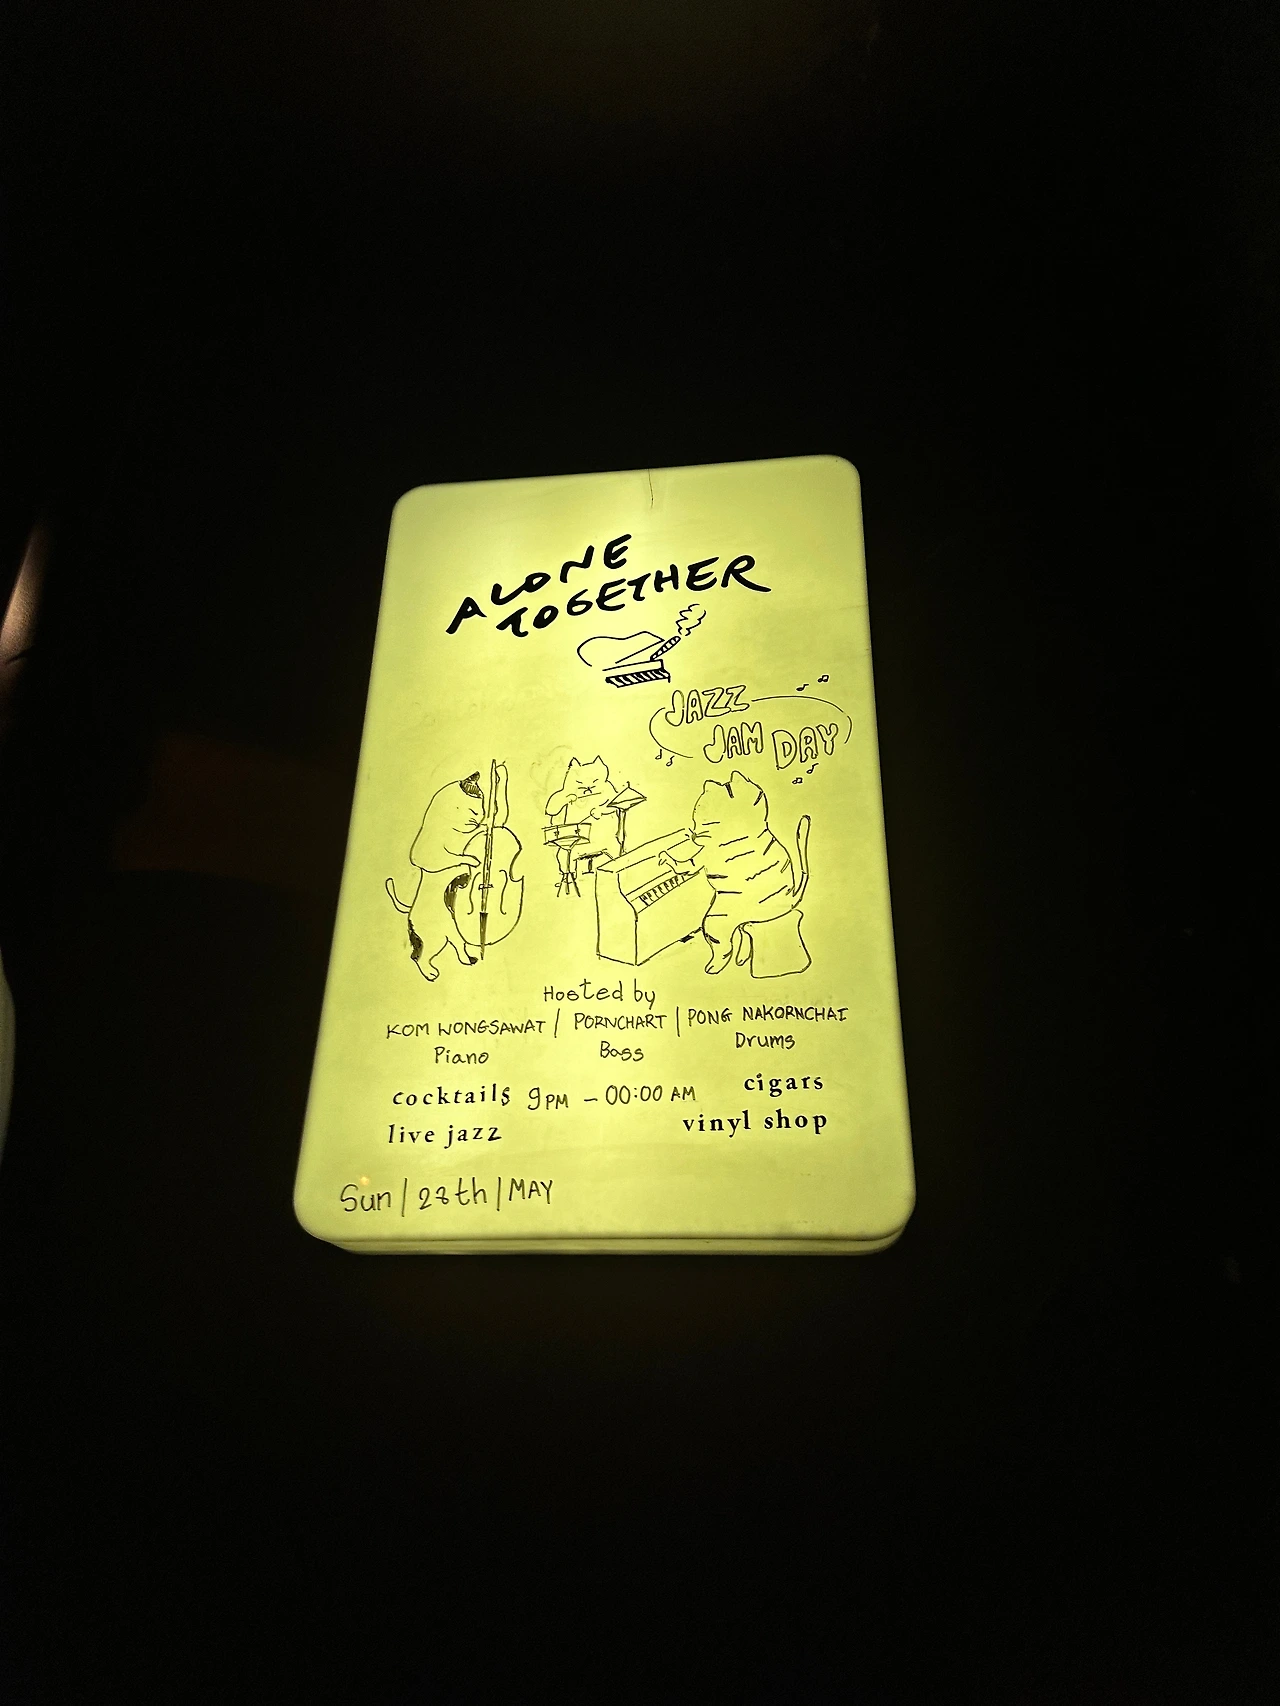 ALONE
TOGETHER
JAZZ
JAM DAY
Hosted by
KOM WONGSAWAT / PORNCHART | PONG NAKORNCHAI
Piano Bass Drums
cocktails 9PM - 00:00 AM cigars
live jazz vinyl shop
Sun | 28th | MAY